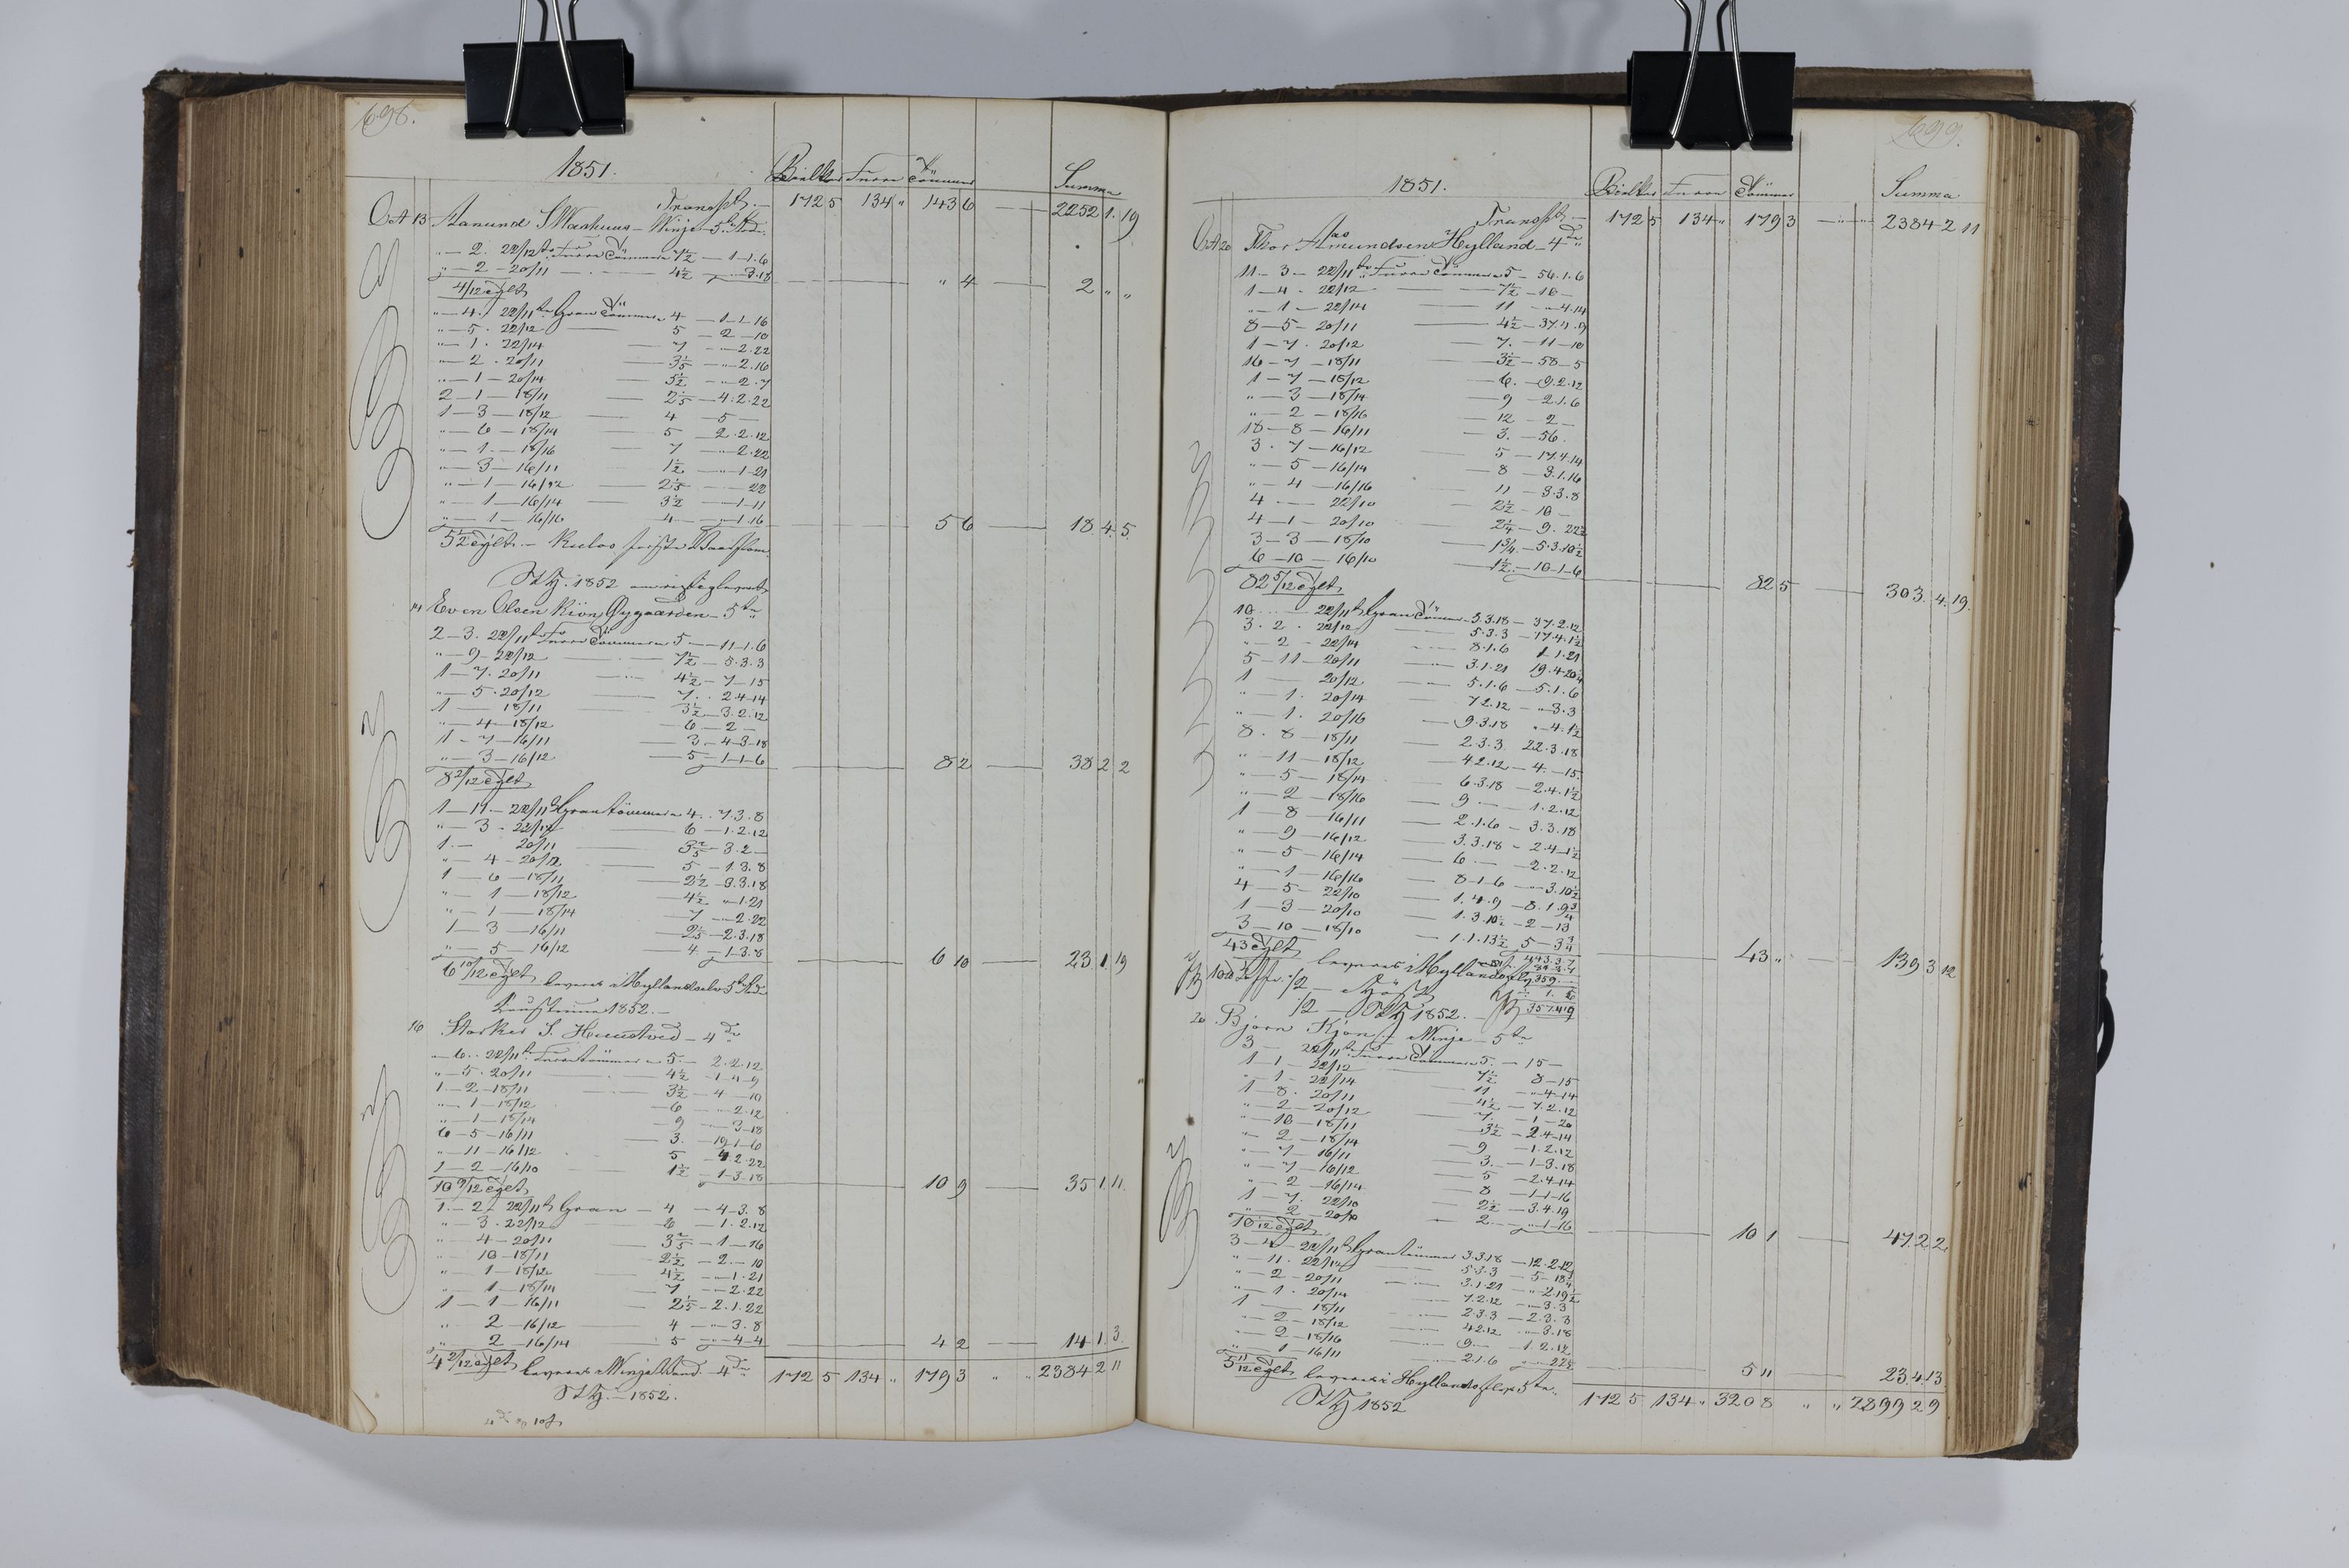 698.
1851. Bielker Furru Tømmer Summa
Transpt. — 172 5 134 " 143 6 — 2252 1. 19
Oct 13 Aanund S. Winje 5te
" — 2. 22/12 Furru Tømmer 7½ — 1-1.6
" — 2 — 20/11 — 4½ — " 3.18 — " 4 — 2 " "
4/12 dylt
" — 4. 22/11 Gran Tømmer 4 — 1-1-16
" — 5. 22/12 — 5 — 2 — 10
" — 1. 22/14 — 7 — " — 2.22
" — 2. 20/11 — 3 2/5 — " — 2.16
" — 1 — 20/14 — 5½ — " — 2.7
2 — 1 — 18/11 — 2 2/5 — 4.2.22
1 — 3 — 18/12 — 4 — 5 —
" — 6 — 18/14 — 5 — 2.2.12
" — 1. — 18/16 — 7 — " — 2.22
" — 3 — 16/11 — 1½ — " — 1-21
" — 1 — 16/12 — 2 — " — 22
" — 1 — 16/14 — 3½ — " — 1-11
" — 1 — 16/16 — 4 — " — 1.16 — 5 6 — 18. 4. 5.
5½ dylt
1852
14 Even Olsen Kiøn Øygaarden — 5te
2 — 3. 22/11 Furru Tømmer 5 — 11-1.6
" — 9 — 22/12 — 7½ — 5.3.3
1 — 7. 20/11 — 4½ — 7 — 15
" — 5. 20/12 — 7. — 2.4-14
1 — 18/11 — 3½ — 3.2.12
" — 4 — 18/12 — 6 — 2 —
1 — 7 — 16/11 — 3 — 4-3-18
" — 3 — 16/12 — 5 — 1-1-6 — 8 2 — 38 2 2
8 2/12 dylt
1 — 11 — 22/11 Gran tømmer 4. — 7.3.8
" — 3 — 22/12 — 6 — 1.2.12
1. — 20/11 — 3 2/5 — 3.2 —
" — 4 — 20/12 — 5 — 1.3.8
1 — 6 — 18/11 — 2½ — 3.3.18
" — 1 — 18/12 — 4½ — " 1.21
" — 1 — 18/14 — 7 — " 2.22
1 — 3 — 16/11 — 2 — 2.3.18
" — 5 — 16/12 — 4 — 1-3.8 — 6 10 — 23 1. 19
6 10/12 dylt leveret i Hyllandselv 5te
1852. —
16 Storker S. Huustved — 4de
" — 6. 22/11 Furru tømmer 5. — 2.2.12
" — 5. 20/11 — 4½ — 1-4-9
1 — 2 — 18/11 — 3½ — 4 — 10
" — 1 — 18/12 — 6 — " 2.12
" — 1 — 18/14 — 9 — " 3-18
6 — 5 — 16/11 — 3. — 19-1-6
" — 11 — 16/12 — 5 — 4.2.22
1 — 2 — 16/10 — 1½ — 1-3-18 — 10 9 — 35 1. 11.
10 9/12 dylt
1. — 2 — 22/11 Gran — 4 — 4-3.8
" — 3. 22/12 — 6 — 1.2.12
" — 4 — 20/11 — 3 2/5 — 1 — 16
" 10 — 18/11 — 2½ — 2. — 10
" — 1 — 18/12 — 4½ — " 1.21
" — 1 — 18/14 — 7 — " 2.22
1 — 1 — 16/11 — 2 — 2.1.22
" 2 — 16/12 — 4 — " 3.8
" 2 — 16/14 — 5 — " 4-4 — 4 2 — 14 1. 3.
4 2/12 dylt leveret i Winje — 4de 172 5 134 " 179 3 " " 2384 2 11
1852.
699.
1851. Bielker Furru Tømmer Summa
Transpt. — 172 5 134 " 179 3 — 2384 2 11
Oct 20 Thor Aas Amundsen Hylland — 4de
11 — 3 — 22/11 Furru Tømmer 5 — 56.1.6
1 — 4. 22/12 — 7½ — 10 —
" — 1 — 22/14 — 11 — " 4.14
8 — 5 — 20/11 — 4½ — 37.4.9
1 — 7. 20/12 — 7. — 11 — 10
16 — 7 — 18/11 — 3½ — 58 — 5
1 — 7 — 18/12 — 6. — 9.2.12
" — 3 — 18/14 — 9 — 2.1.6
" — 2 — 18/16 — 12 — 2 —
18 — 8 — 16/11 — 3. — 56.
3. 7 — 16/12 — 5 — 17.4.14
" — 5 — 16/14 — 8 — 3.1.16
" — 4 — 16/16 — 11 — 3.3.8
4 — 22/10 — 2½ — 10 —
4 — 1 — 20/10 — 2¼ — 9. 22½
3 — 3 — 18/10 — 1¾ — 5.3.10½
6 — 10 — 16/10 — 1½ — 10-1-6 — 82 5 — 303. 4. 19.
82 5/12 dylt
10 — 22/11 Gran Tømmer 3.3.18 — 37.2.12
3. 2. 22/12 — 5.3.3 — 17.4.1½
" — 2 — 22/14 — 8.1.6 1-1.21
5 — 11 — 20/11 — 3.1.21 19.4-20¼
1 — 20/12 — 5.1.6 — 5.1.6
" — 1. 20/14 — 7.2.12 — " 3.3
" — 1. 20/16 — 9.3.18 " 4.1½
8. 8 — 18/11 — 2.3.3 22.3.18
" — 11 — 18/12 — 4.2.12 — 4. — 15.
" — 5 — 18/14 — 6.3.18 — 2.4.1½
" — 2 — 18/16 — 9 — 1.2.12
1 8 — 16/11 — 2.1.6 — 3.3.18
" — 9 — 16/12 — 3.3.18 — 2.4-1½
" — 5 — 16/14 — 6 — 2.2.12
" — 1 — 16/16 — 8-1-6 — " 3.10½
4 — 5 — 22/10 — 1.4.9 — 8.1.9¾
1 — 3 — 20/10 — 1.3.10½ — 2 — 13
3 — 10 — 18/10 — 1.1.13½ 5 — 3¾ — 43 " — 139 3 12
43 dylt leveret i Hyllandselv 443.3.7
359
1/2 —
1/2 — 1852. — 357.4.19
20 Bjørn Kjøn Winje — 5te
3 — 22/11 Furru Tømmer 5. — 15 —
1 — 1 — 22/12 — 7½ 8 — 15
" — 1 — 22/14 — 11 — " 4-14
1 — 8. 20/11 — 4½ — 7.2.12
" — 2 — 20/12 — 7. — 1 — 20
" — 10 — 18/11 — 3½ — 2.4-14
" — 2 — 18/14 — 9 — 1.2.12
" — 7 — 16/11 — 3. — 1-3.18
" — 7 — 16/12 — 5 — 2.4-14
" — 2 — 16/14 — 8 — 1-1-16
1 — 7. 22/10 — 2½ — 3.4.19
" — 2 — 20/10 — 2. — " 1-16 — 10 1 — 47 2 2
10 1/12 dylt
3 — 4 — 22/11 Gran tømmer 3.3.18 — 12.2.12
" — 11. 22/12 — 5.3.3 — 5 — 18¾
" — 2 — 20/11 — 3.1.21 — " 2.19½
" — 1. 20/14 — 7.2.12 — " 3.3
1 18/11 — 2.3.3 — 2.3.3
" — 2 — 18/12 — 4.2.12 — " 3.18
" — 2 — 18/16 — 9 — 1.2.12
" — 1 — 16/11 — 2.1.6 — 5 11 — 23. 4. 13.
5 11/12 dylt leveret i Hyllands 5te. 172 5 134 " 320 8 " " 2899 2 9
1852